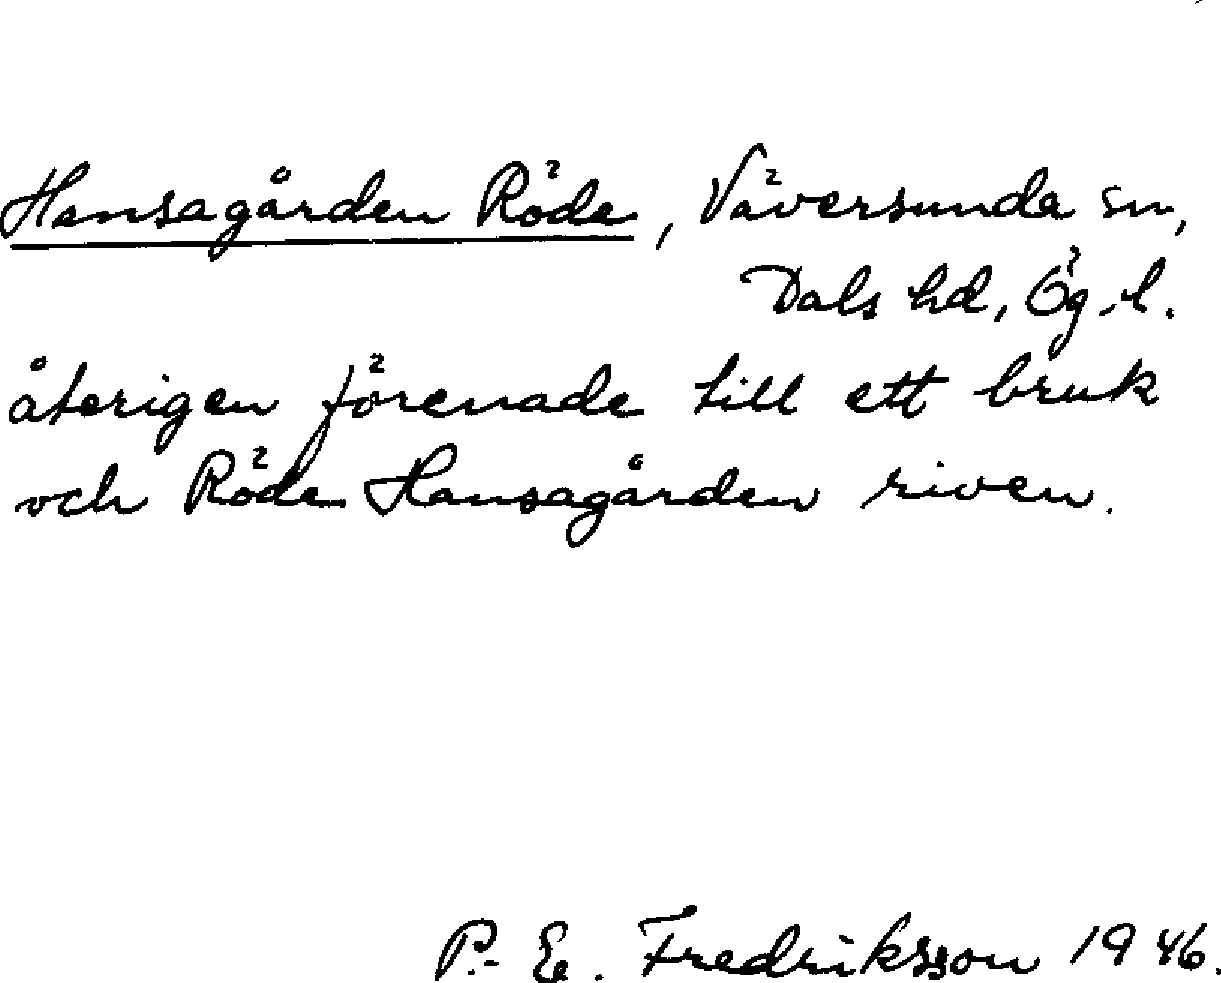 Hansagården Röde, Väversunda sn,
Dals hd, Ög. l.
återigen förenade till ett bruk
och Röde Hansagården riven.
P.-E. Fredriksson 1946.